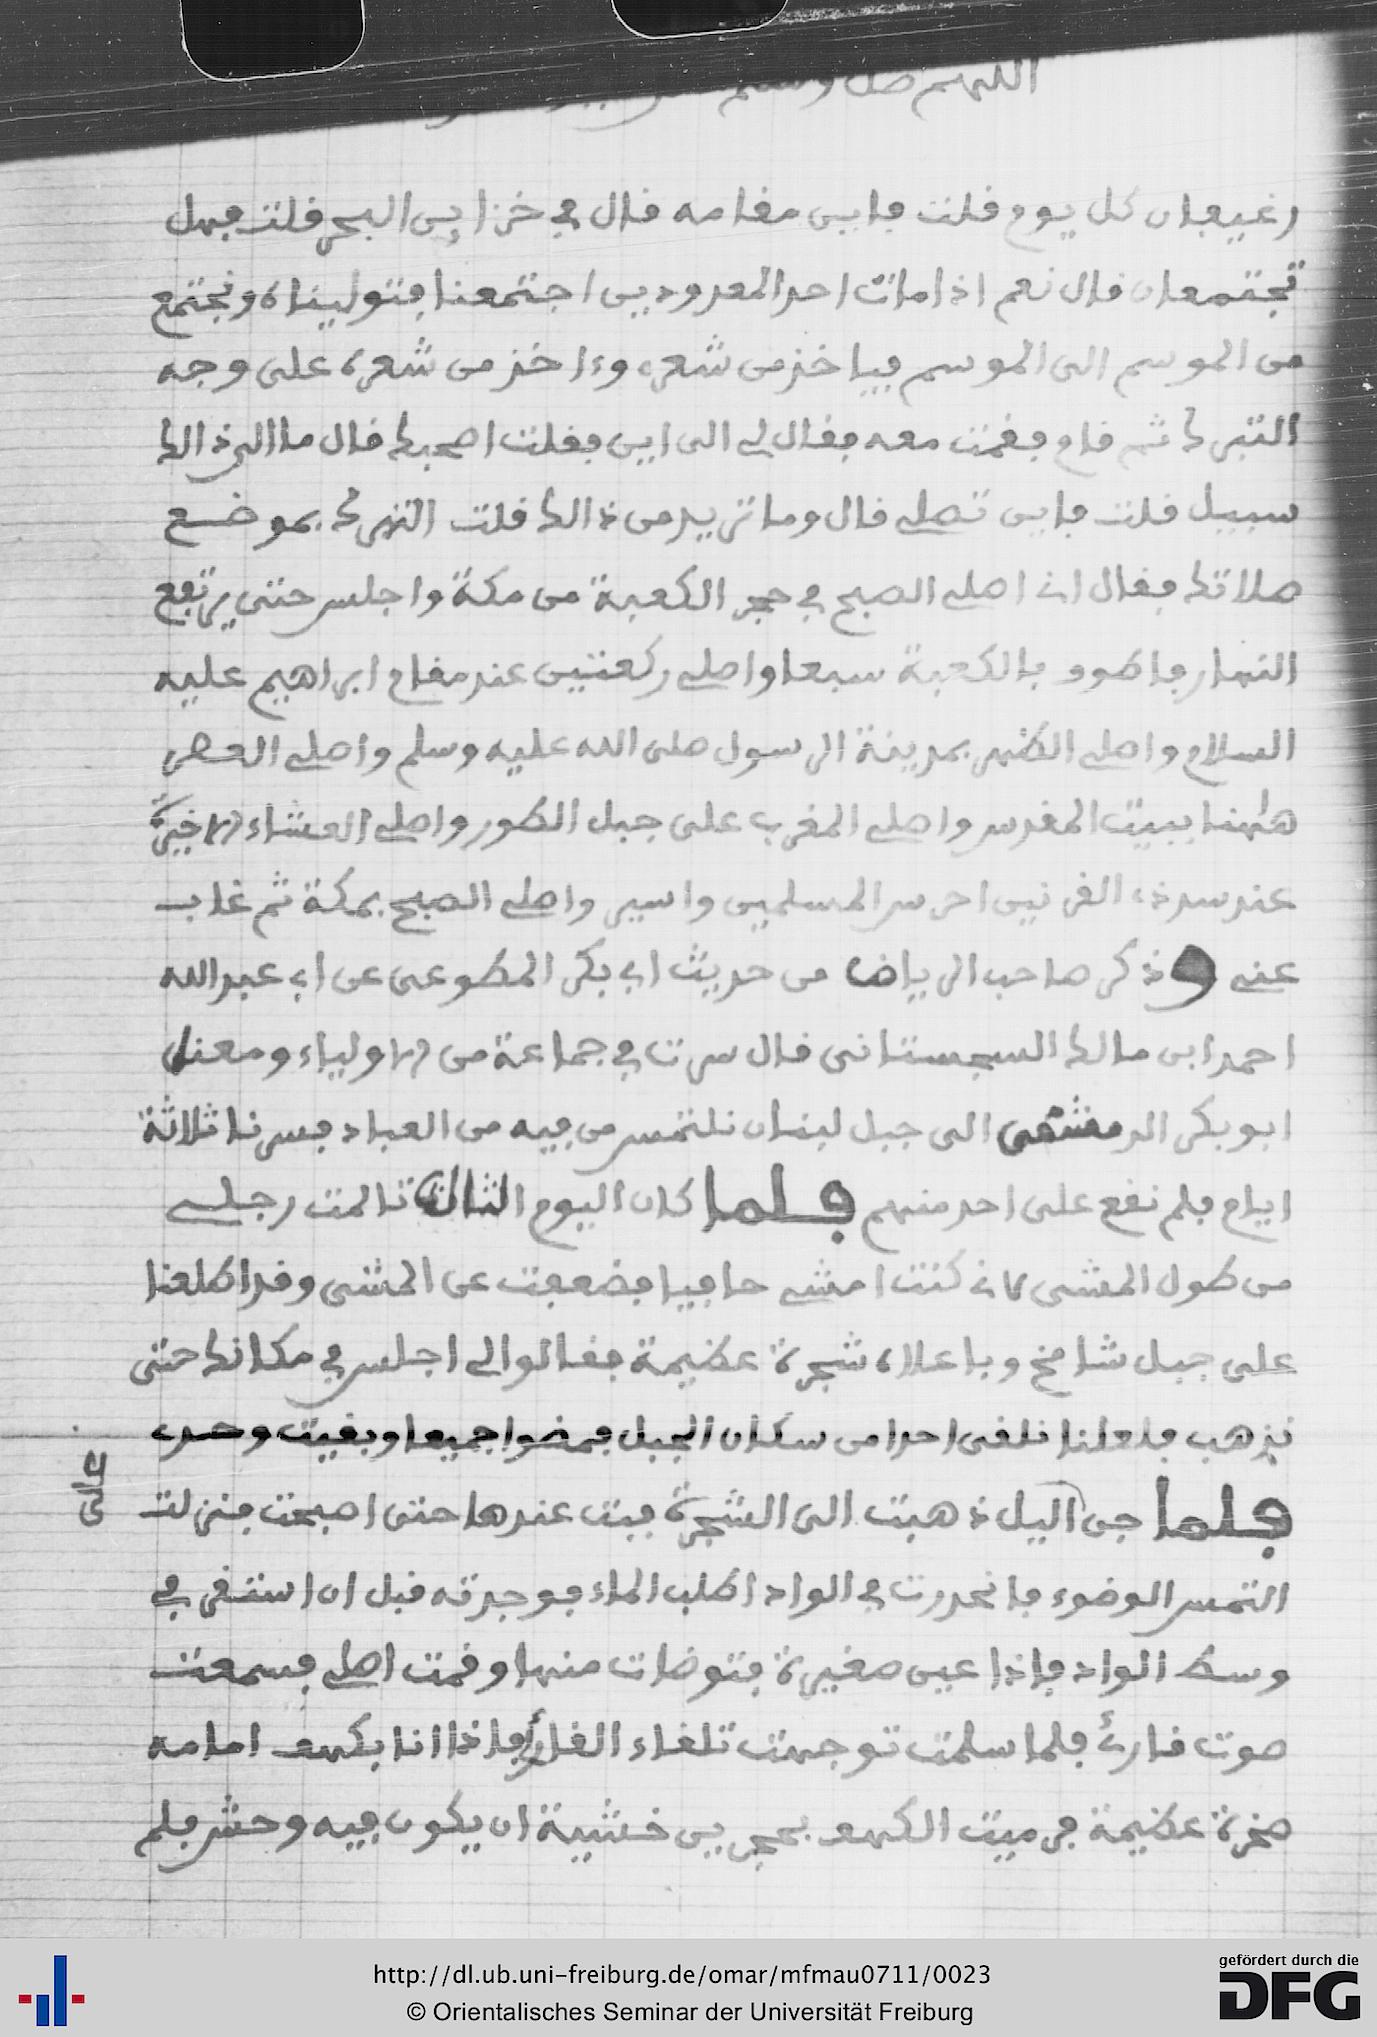 اللهم صل وسلم
رغيفان كل يوم فلت فاين مقامه قال في خزاين البحر قلت فهل
تجتمعان قال نعم اذا مات احد المعدودين اجتمعنا فتوليناه ونجتمع
من الموسم الى الموسم فياخذ من شعره وءاخذ من شعره على وجه
التبرك ثم قام فقمت معه فقال لي الى اين فقلت اصحبك قال ما الى ذالك
سبيل قلت فاين تصلي قال وما تريد من ذالك قلت التبرك بموضع
صلاتك فقال اني اصلي الصبح في حجر الكعبة من مكة واجلس حتى يرتفع
النهار فاطوف بالكعبة سبعا واصلي ركعتين عند مقام ابراهيم عليه
السلام واصلي الظهر بمدينة الرسول صلى الله عليه وسلم واصلي العصر
هاهنا ببيت المقدس واصلي المغرب على جبل الطور واصلي العشاء الاخيرة
عند سد ذي القرنين احرس المسلمين واسير واصلي الصبح بمكة ثم غاب
عني وذكر صاحب الرياض من حديث ابي بكر المطوعي عن ابي عبد الله
احمد ابن مالك السجستاني قال سرت في جماعة من الاولياء ومعنا
ابو بكر الدمشقي الى جبل لبنان نلتمس من فيه من العباد فسرنا ثلاثة
ايام فلم نقع على احد منهم فلما كان اليوم الثالث تالمت رجلي
من طول المشي لاني كنت امشي حافيا فضعفت عن المشي وقد اطلعنا
على جبل شامخ وباعلاه شجرة عظيمة فقالوا لي اجلس في مكانك حتى
نذهب فلعلنا نلقى احدا من سكان الجبل فمضوا جميعا وبقيت وحدي
فلما جن اليل ذهبت الى الشجرة فبت عندها حتى اصبحت فنزلت
التمس الوضوء فانحدرت في الواد اطلب الماء فوجدته قبل ان استقر في
وسط الواد فاذا عين صغيرة فتوضات منها وقمت اصلي فسمعت
صوت قارئ فلما سلمت توجهت تلقاء القارئ فاذا انا بكهف امامه
صخرة عظيمة فرميت الكهف بحجرين خشية ان يكون فيه وحش فلم
http://dl.ub.uni-freiburg.de/omar/mfmau0711/0023
© Orientalisches Seminar der Universität Freiburg
gefördert durch die
DFG